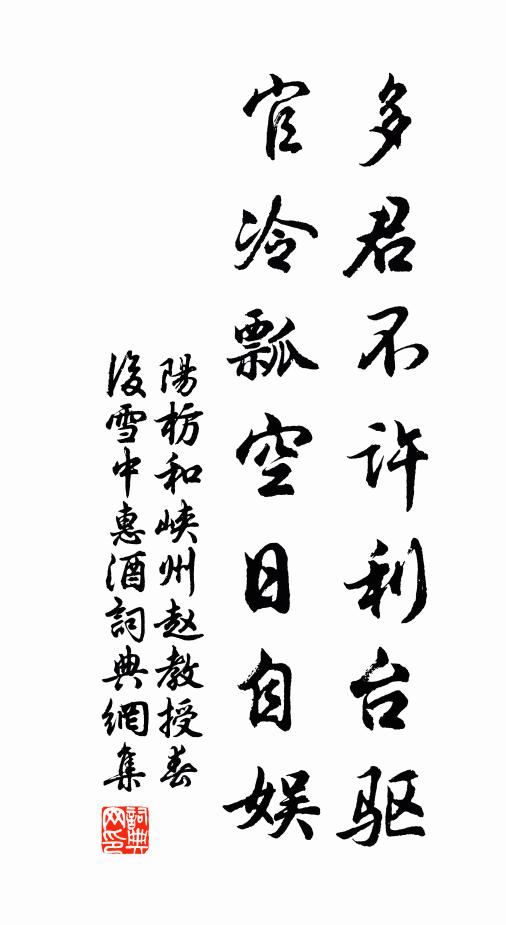 多君不许利台驱
官冷瓢空日自娱
陽枋和峡州赵教授春
後雪中惠酒詞典網集
詞典
网印